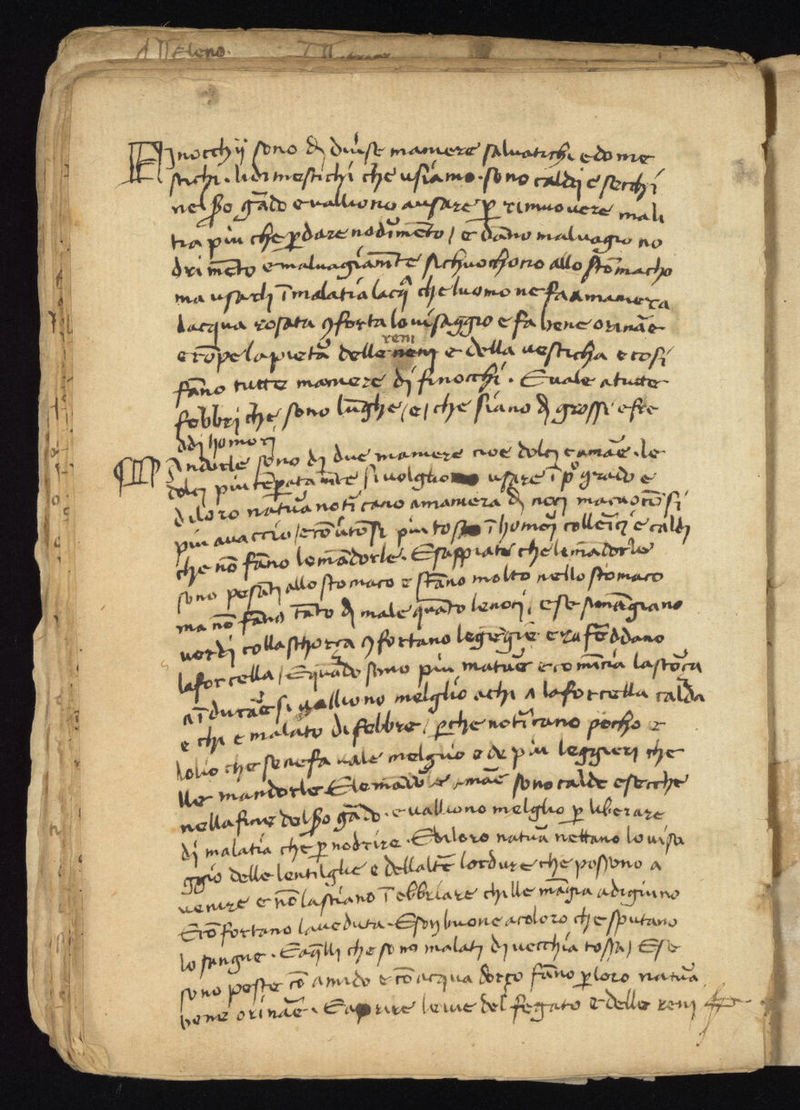 Finocchij sono dj divse maniere salvatichi e dome
stichi · li dimestichi che usiamo · sono caldj e secchi
nel sº gādo e valliono a usare p rimuovere mali
tia piu che p dare nodimēto / e dāno malvagio no
drimēto e malvagiamēte si chuochono allo stomacho
ma usarli ī malatia lacq̄ che luomo ne fa a maniera
dacqua rosata cōforta lo visaggio e fa bene orinaē
e rōpe la pietā delle reni neni e della vesticha e cosi
fāno tutte maniere di finocchi · E vale a tutte
febbri che sono lūghe / e / che siano dj grossi e fre
ddi homori
Mandorle sono dj due maniere cioe dolci e amaē · le
dolcj piu tēpatamēte si volgliono usare ī pº grado e
di loro natuā notī cano a maniera dj noci ma cuocōsi
piu avaccio / e cōvtōsi piu tosto ī homorj collericj e caldj
che nō fāno le mādorle · E sappiate che le mādorle
sono pesāti allo stomaco e stāno molto nello stomaco
ma nō fāno tāto dj male quāto le nocj / e se si māgiano
verdi colla schorça cōfortano le gēgie e rafēddano
la forcella / E quādo sono piu matuē e comīcia la scorça
a īduraē si valliono melglio a chi a la forcella calda
e chi e malato di febbre / pche notīcano pocho e
lolio che se ne fa vale melglio ed e piu leggieri che
lle mandorle E le mādorle amaē sono calde e secche
nella fine del sº gādo · e valliono melglio p liberare
dj malatia che p nodrire · E di loro natuā nettano lo visa
ggio delle lentilglie e dellaltē lordure che possono a
venire e nō lasciano īebbriare chi lle māgia a digiuno
E cōfortano la veduta · E son buone a coloro che sputano
lo sangue · E a qlli che sono malatj dj vecchia tossa / E se
sono peste cō amido e cō acqua dorço fāno p loro natuā
bene orinaē · E aprire le vie del fegato e delle renj